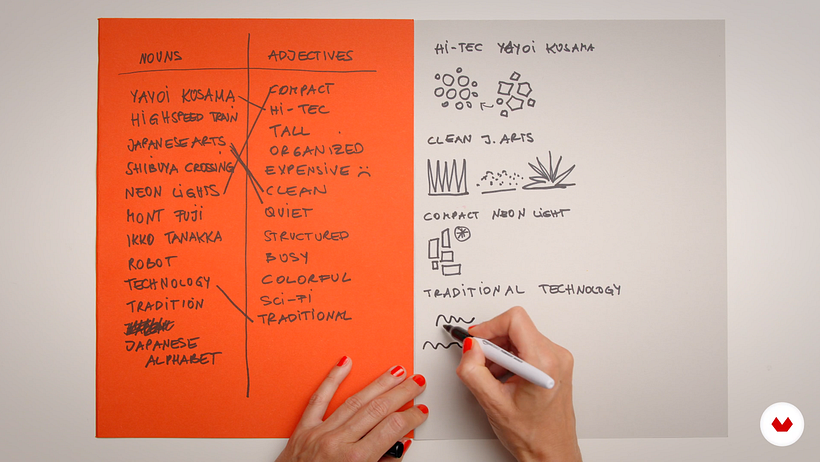 NOUNS
YAYOI KUSAMA
HIGHSPEED TRAIN
JAPANESE ARTS
SHIBUYA CROSSING
NEON LIGHTS
MONT FUJI
IKKO TANAKKA
ROBOT
TECHNOLOGY
TRADITION
JAPANESE
ALPHABET
ADJECTIVES
COMPACT
Hi-TEC
TALL
ORGANIZED
EXPENSIVE
CLEAN
QUIET
STRUCTURED
BUSY
COLORFUL
SCi-Fi
TRADITIONAL
Hi-TEC YAYOI KUSAMA
CLEAN J. ARTS
COMPACT NEON LIGHT
TRADITIONAL TECHNOLOGY